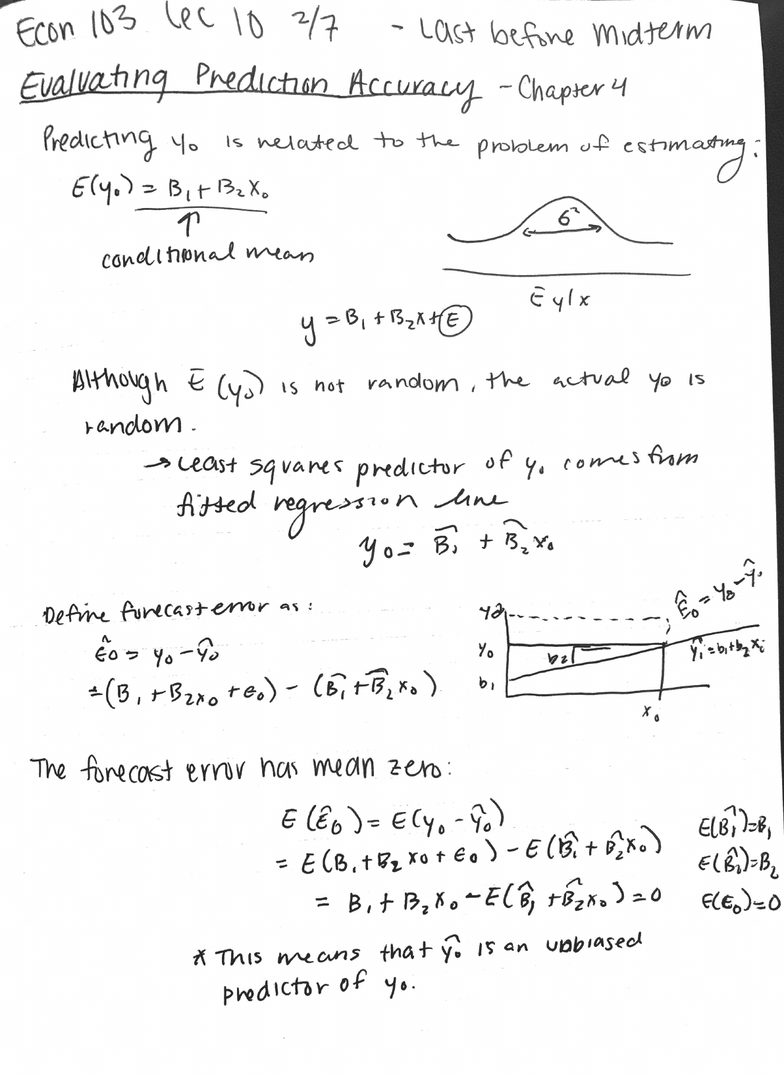 Econ 103 Lec 10 2/7 - Last before midterm
Evaluating Prediction Accuracy - Chapter 4
Predicting y₀ is related to the problem of estimating:
E(y₀) = B₁ + B₂X₀
↑
conditional mean
σ²
E y|x
y = B₁ + B₂X + E
Although E(y₀) is not random, the actual y₀ is
random.
→ Least squares predictor of y₀ comes from
fitted regression line
y₀ = B̂₁ + B̂₂x₀
Define forecast error as:
ε̂₀ = y₀ - ŷ₀
= (B₁ + B₂x₀ + ε₀) - (B̂₁ + B̂₂x₀)
ε̂₀ = y₀ - ŷ₀
y₀
b₂
ŷᵢ = b₁ + b₂xᵢ
b₁
x₀
The forecast error has mean zero:
E(ε̂₀) = E(y₀ - ŷ₀)
= E(B₁ + B₂x₀ + ε₀) - E(B̂₁ + B̂₂x₀)
= B₁ + B₂x₀ - E(B̂₁ + B̂₂x₀) = 0
E(B̂₁) = B₁
E(B̂₂) = B₂
E(ε₀) = 0
* This means that ŷ₀ is an unbiased
predictor of y₀.